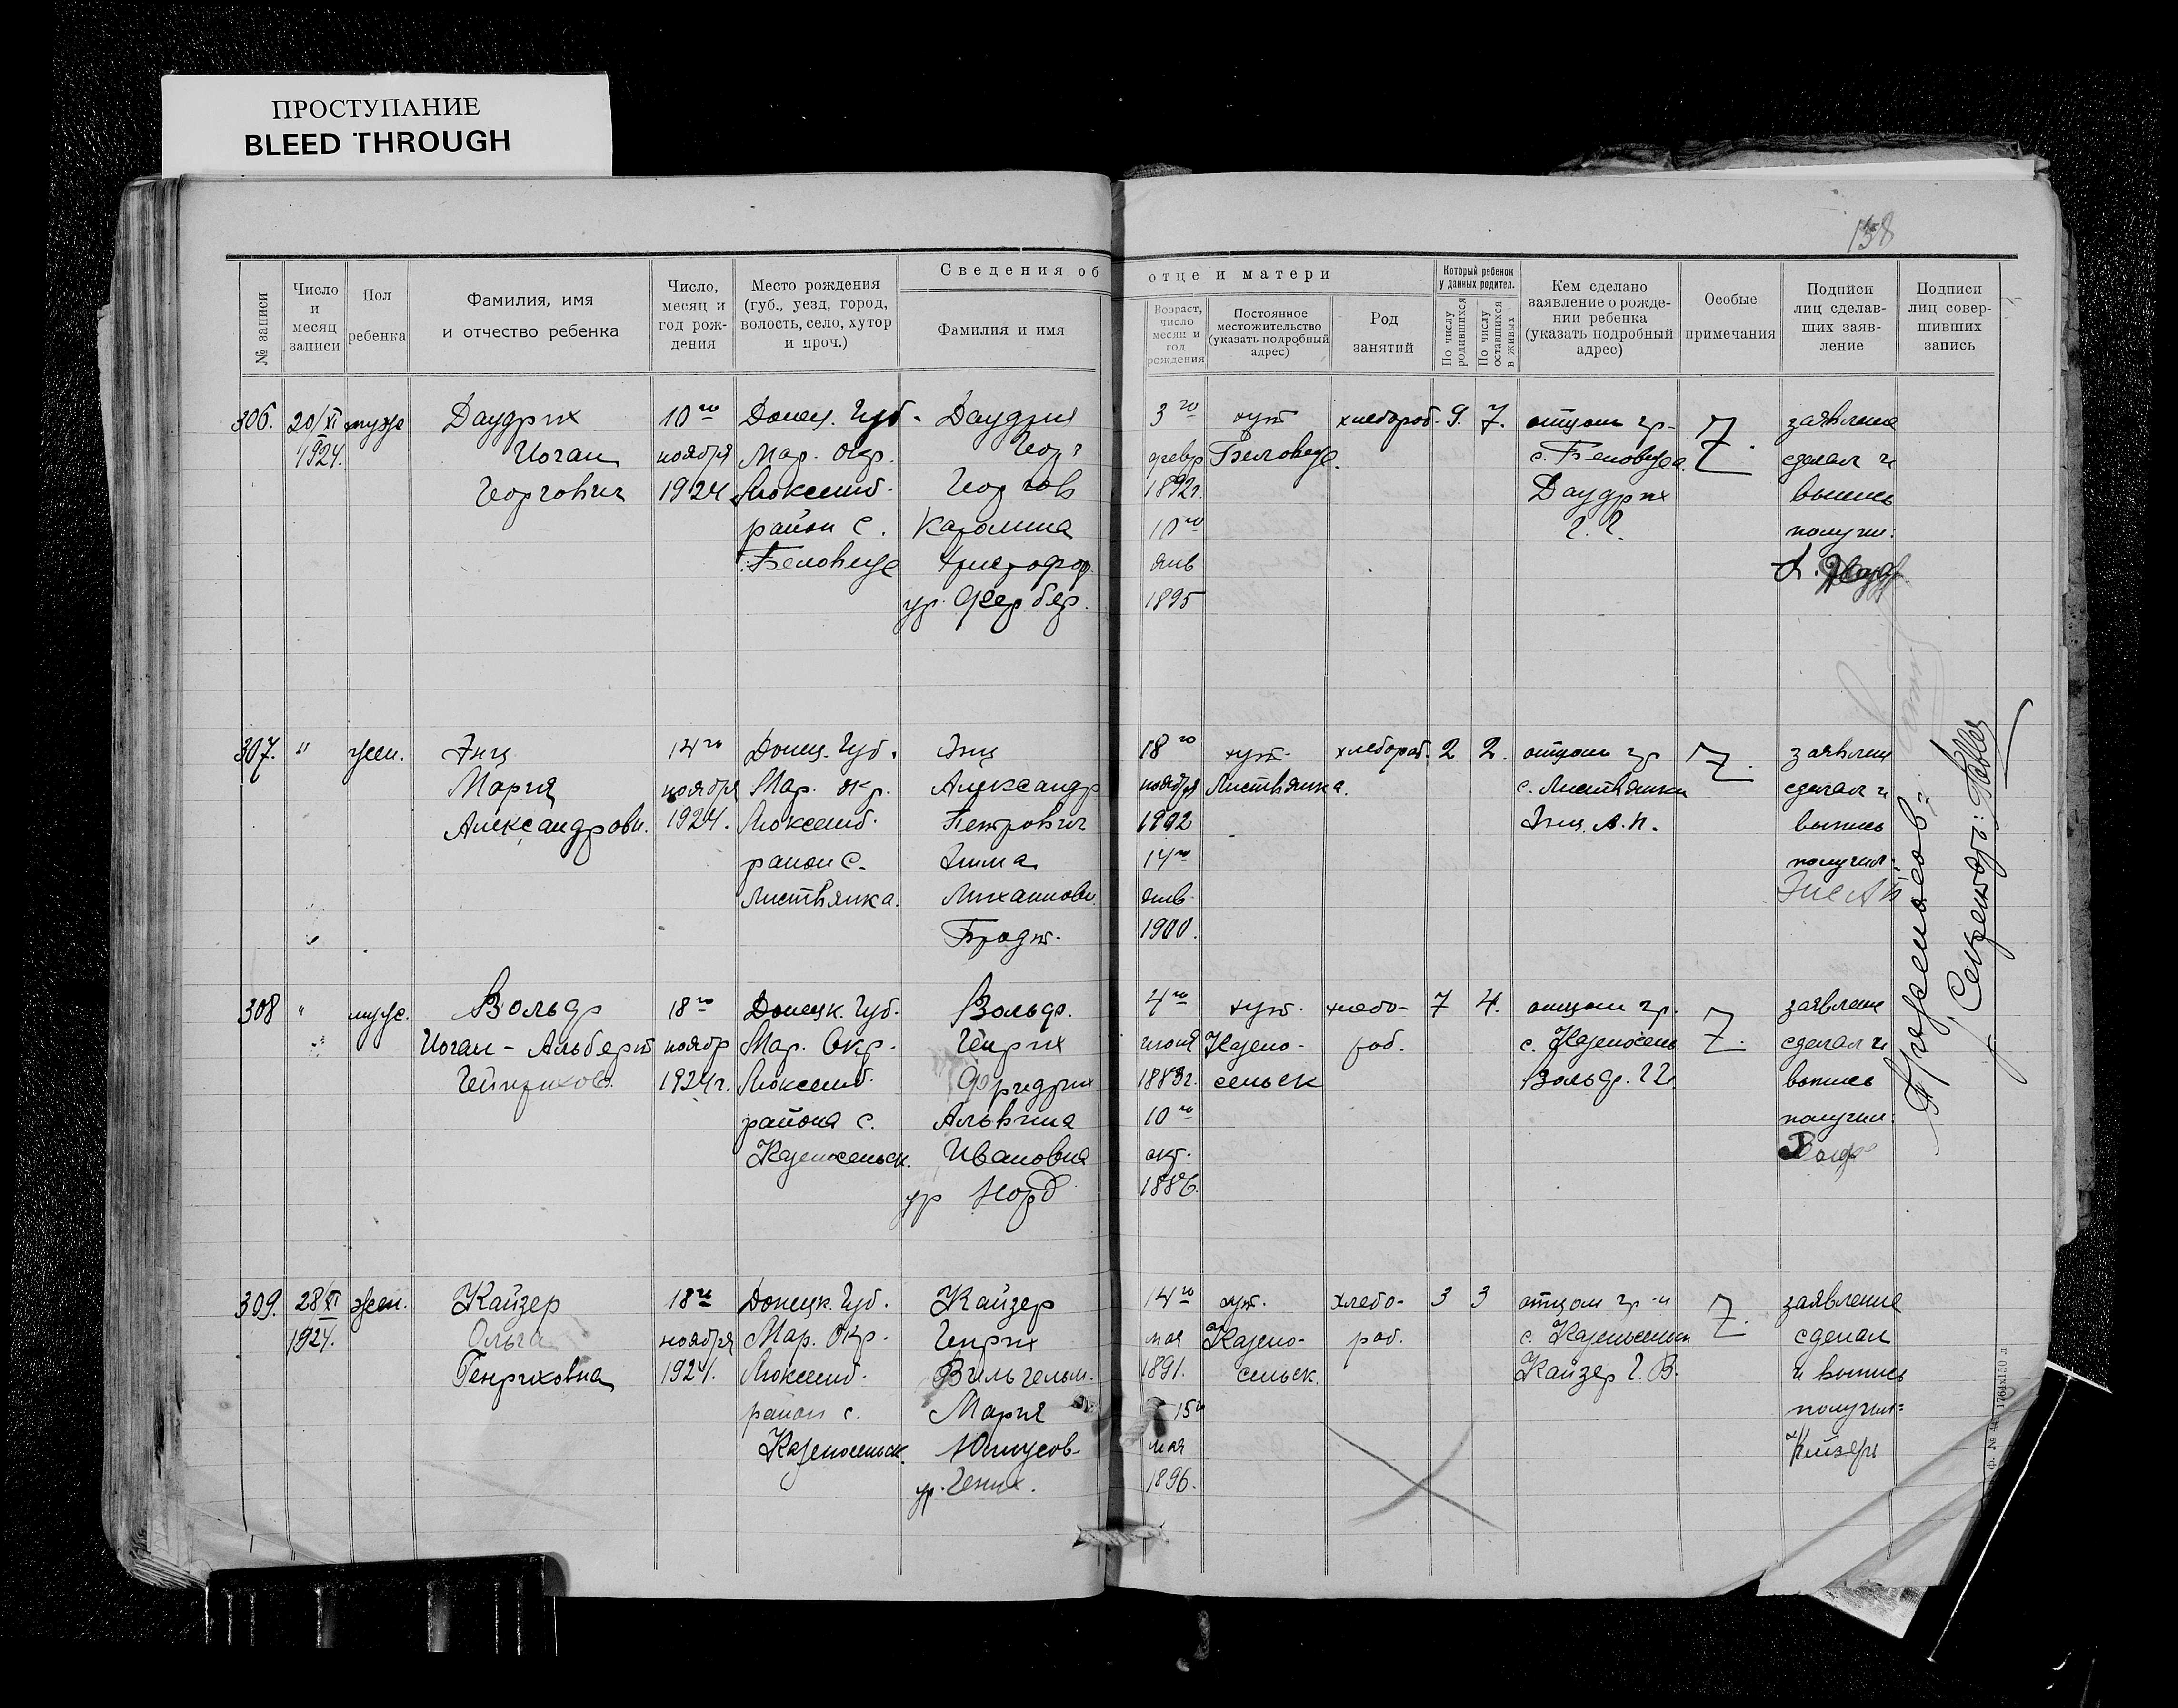 ПРОСТУПАНИЕ
BLEED THROUGH
158
Сведения об отце и матери
№ записи
Число и месяц записи
Пол ребенка
Фамилия, имя и отчество ребенка
Число, месяц и год рождения
Место рождения (губ., уезд, город, волость, село, хутор и проч.)
Фамилия и имя
Возраст, число месяц и год рождения
Постоянное местожительство (указать подробный адрес)
Род занятий
Который ребенок у данных родител.
По числу родившихся
По числу оставшихся в живых
Кем сделано заявление о рождении ребенка (указать подробный адрес)
Особые примечания
Подписи лиц сделавших заявление
Подписи лиц совершивших запись
306. 20/XI 1924. муже
Даудрих
Иоган
Георгович
10го
ноября
1924
Донец. Губ.
Мар. окр.
Люксемб.
район с.
Беловеже
Даудрих
Георг
Георгов
Каролина
Христофор
ур. Фербер.
3го
февр
1892г.
10го
янв
1895
хут
Беловеж.
хлебороб. 9. 7.
отцом гр.
с. Беловежа.
Даудрих
Г. Г.
7.
заявление
сделал и
выпись
получил:
307. " жен.
Энц
Мария
Александровн.
14го
ноября
1924.
Донец. Губ.
Мар. окр.
Люксемб.
район с.
Листвянка.
Энц
Александр
Петрович
Эмма
Михайловн.
Бродт.
18го
ноября
1902
14го
янв.
1900.
хут.
Листвянка.
хлебороб. 2 2.
отцом гр
с. Листвянки
Энц. А. П.
7.
заявлен
сделал и
выпись
получил:
308 " муж.
Вольф
Иоган - Альберт
Гейнрихов.
18го
ноябр
1924г.
Донецк. Губ.
Мар. Окр.
Люксемб.
района с.
Казеносельск.
Вольф.
Генрих
Фридрих
Альвина
Ивановна
ур Норд
4го
июня
1883г.
10го
окт.
1886.
хут.
Казено-
сельск
хлебо-
роб.
7 4.
отцом гр.
с. Казеносель
Вольф. Г. Г.
7.
заявление
сделал и
выпись
получил:
Вольф
309. 28/XI 1924. жен.
Кайзер
Ольга
Генриховна
18го
ноября
1924.
Донецк. Губ.
Мар. окр.
Люксемб.
район с.
Казеносельск.
Кайзер
Генрих
Вильгельм.
Мария
Юлиусов-
ур. Гених.
14го
мая
1891.
15го
мая
1896.
хут.
Казено-
сельск.
хлебо-
роб.
3 3
отцом гр-н
с. Казеносельск
Кайзер Г. В.
7.
заявление
сделал
и выпись
получил:
Кайзер
Секретарь:
Ф. № 44. 1764х150 л